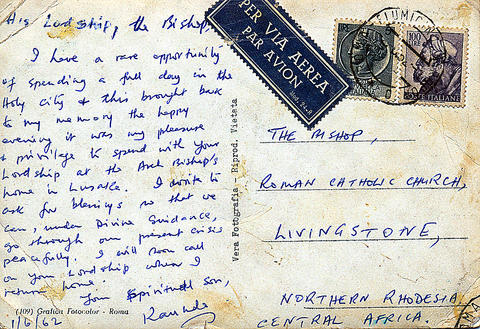 His Lordship, the Bishop,
I have a rare opportunity
of spending a full day in the
Holy City & this brought back
to my memory the happy
evening it was my pleasure
& privilage to spend with your
Lordship at the Arch Bishop's
home in Lusaka. I write to
ask for blessings so that we
can, under Divine Guidance,
go through our present crisis
peacefully. I will soon call
on your Lordship when I
return home.
Your Spiritual son,
Kaunda
(109) Grafica Fotocolor - Roma
1/6/62
Vera Fotografia - Riprod. Vietata
PER VIA AEREA
PAR AVION
FIUMICINO
100
POSTE ITALIANE
THE BISHOP,
ROMAN CATHOLIC CHURCH,
LIVINGSTONE,
NORTHERN RHODESIA
CENTRAL AFRICA.